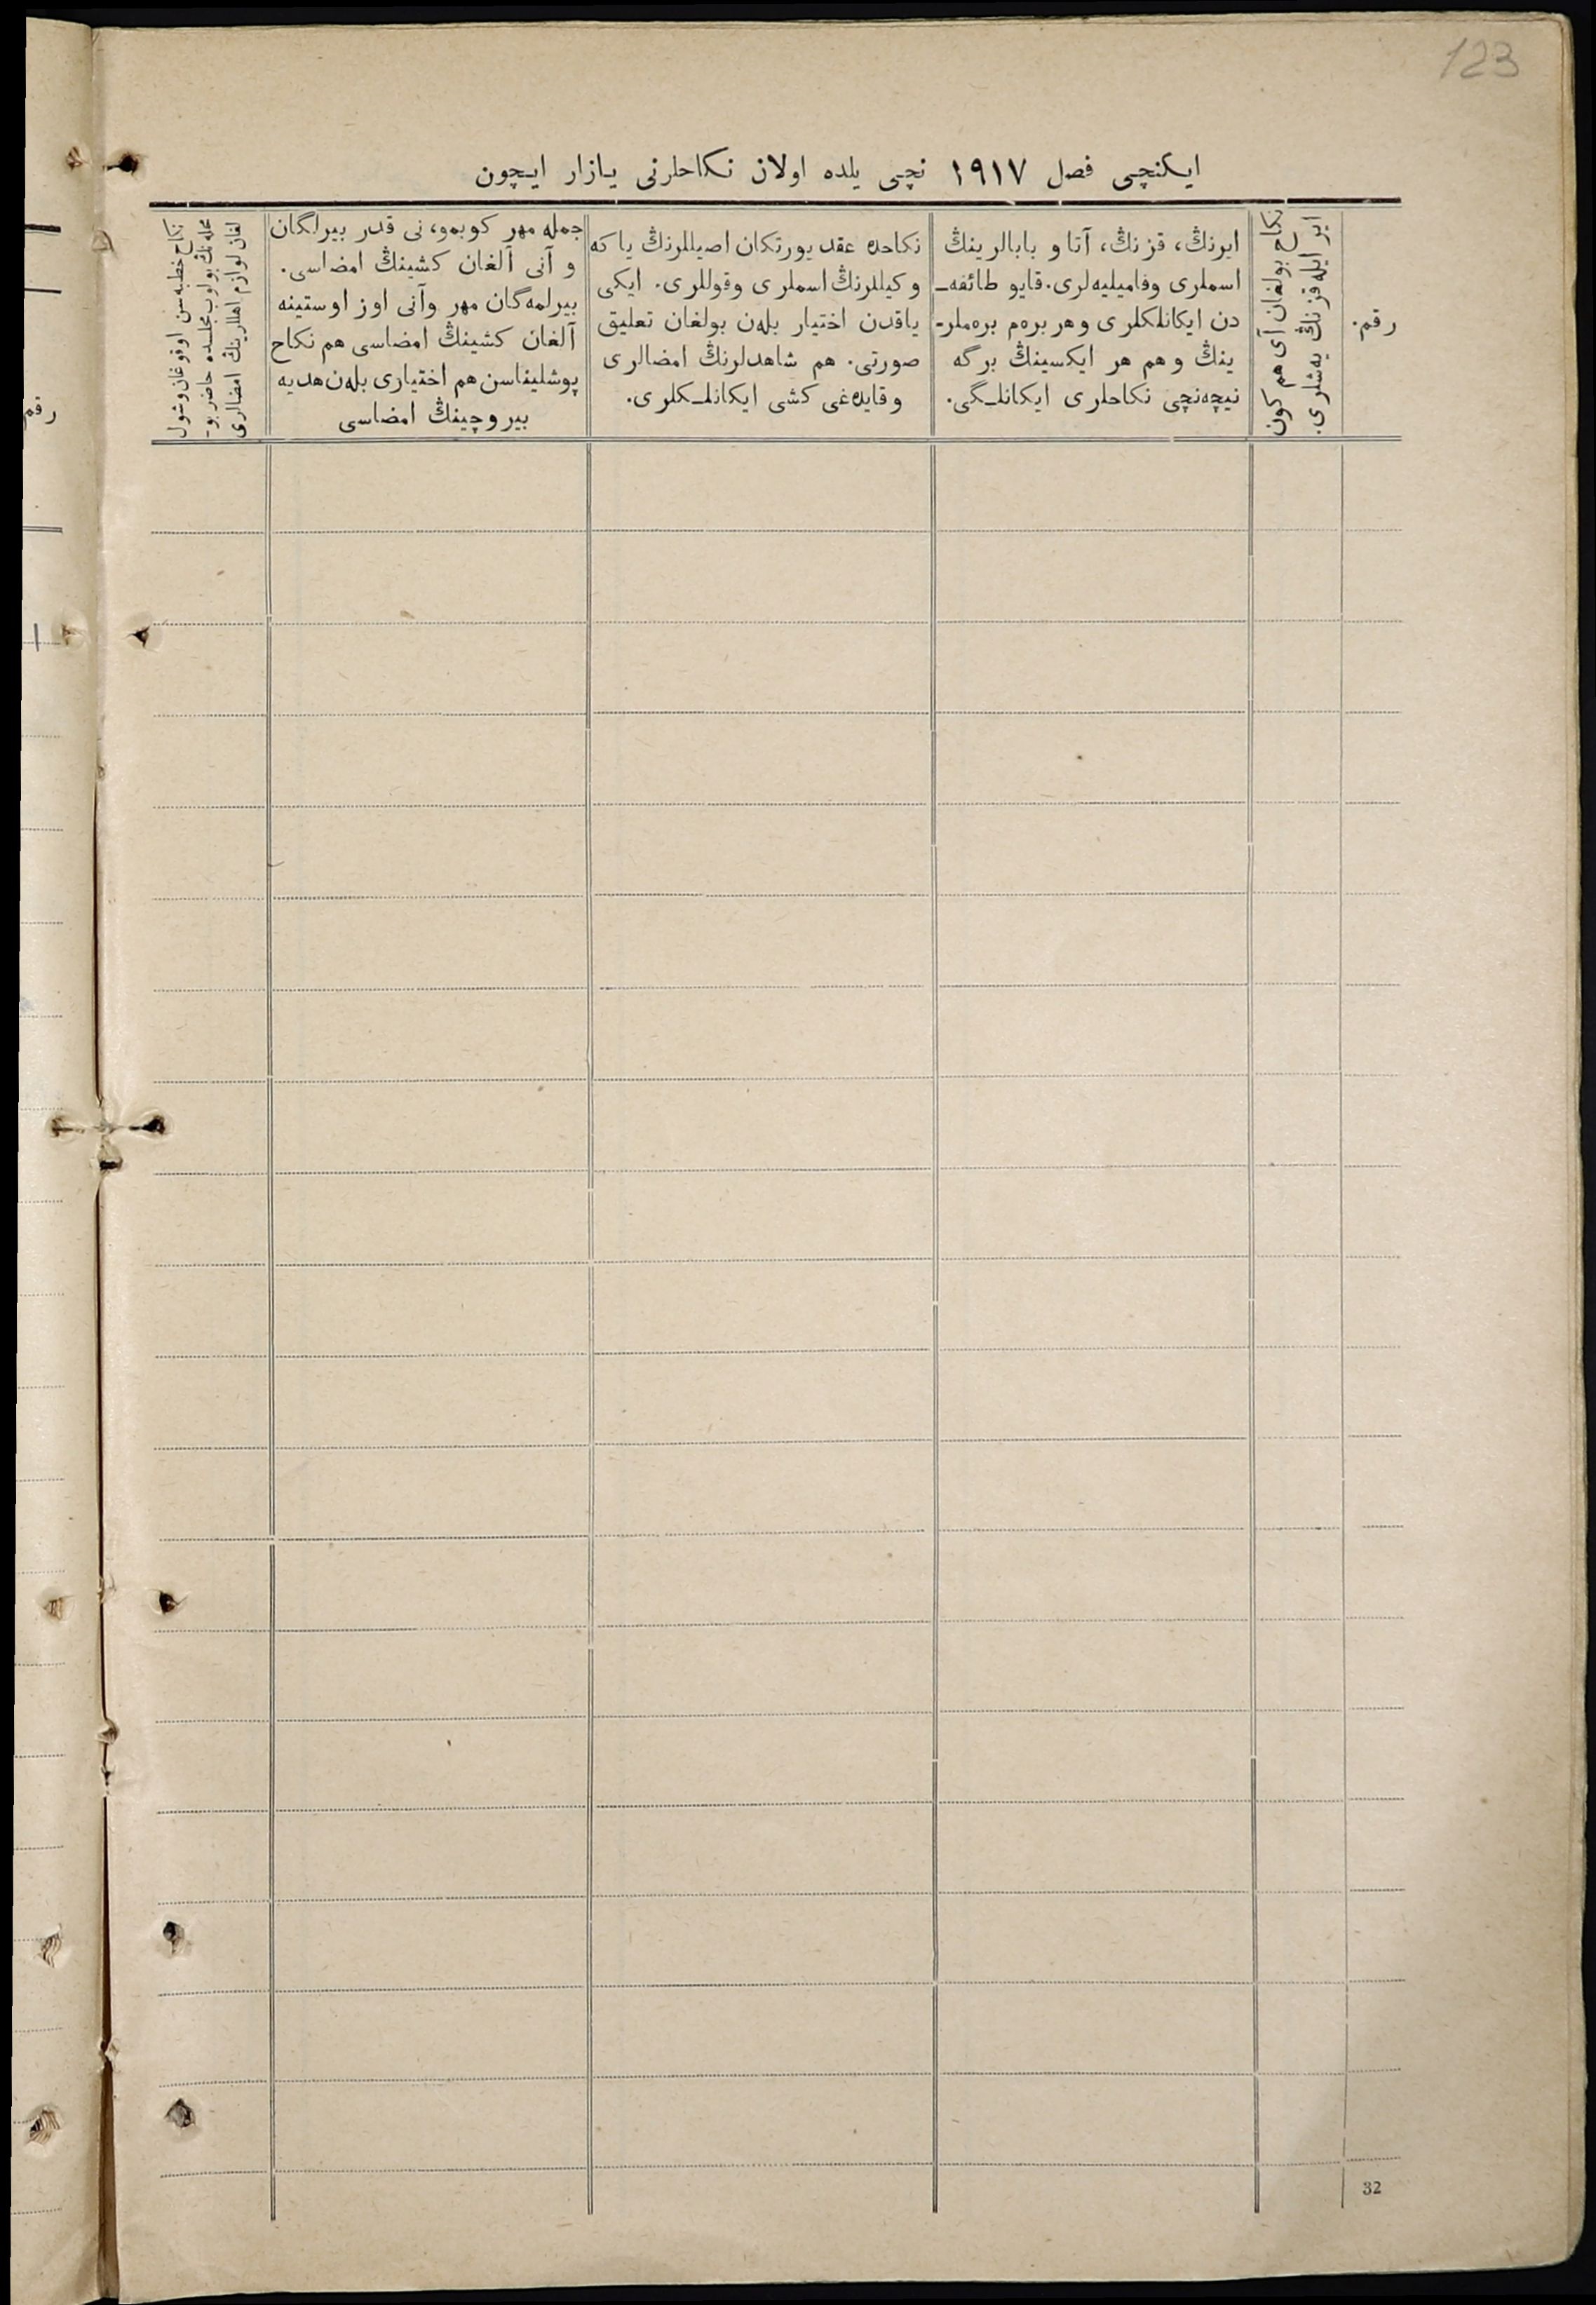 123
ایکنچی فصل ۱۹۱۷ نچی یلده اولان نکاحلرنی یازار ایچون
رقم.
نکاح بولغان آی هم کون
ایر ایله قزنڭ یه‌شلری.
ایرنڭ، قزنڭ، آتا و بابالرینڭ
اسملری وفامیلیه‌لری. قایو طائفه‌ـ
دن ایکانلکلری و هر بره‌م بره‌ملر-
ینڭ و هم هر ایکسینڭ برگه
نیچه‌نچی نکاحلری ایکانلـگی.
نکاحده عقد یورتکان اصیللرنڭ یا که
وکیللرنڭ اسملری وقوللری. ایکی
یاقدن اختیار بله‌ن بولغان تعلیق
صورتی. هم شاهدلرنڭ امضالری
وقایده‌غی کشی ایکانلـکلری.
جمله مهر کوبمو، نی قدر بیرلگان
و آنی آلغان کشینڭ امضاسی.
بیرلمه‌گان مهر وآنی اوز اوستینه
آلغان کشینڭ امضاسی هم نکاح
پوشلیناسن هم اختیاری بله‌ن هدیه
بیروچینڭ امضاسی
نکاح خطبه‌سن اوقوغان وشول
محله‌نڭ بولوب مجلسده حاضر بو-
لغان لوازم اهللارینڭ امضالری
رقم
32